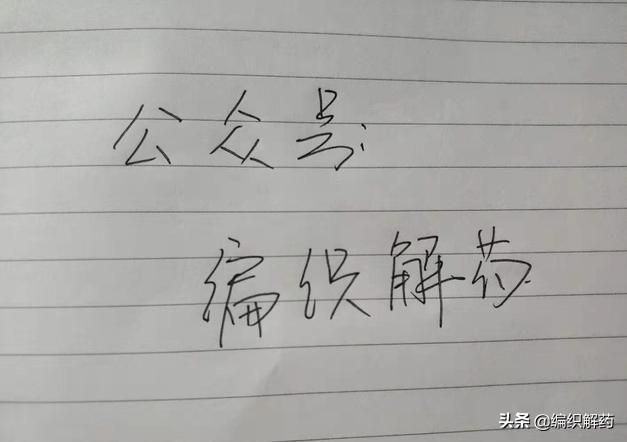 公众号:
编织解药
头条 @编织解药